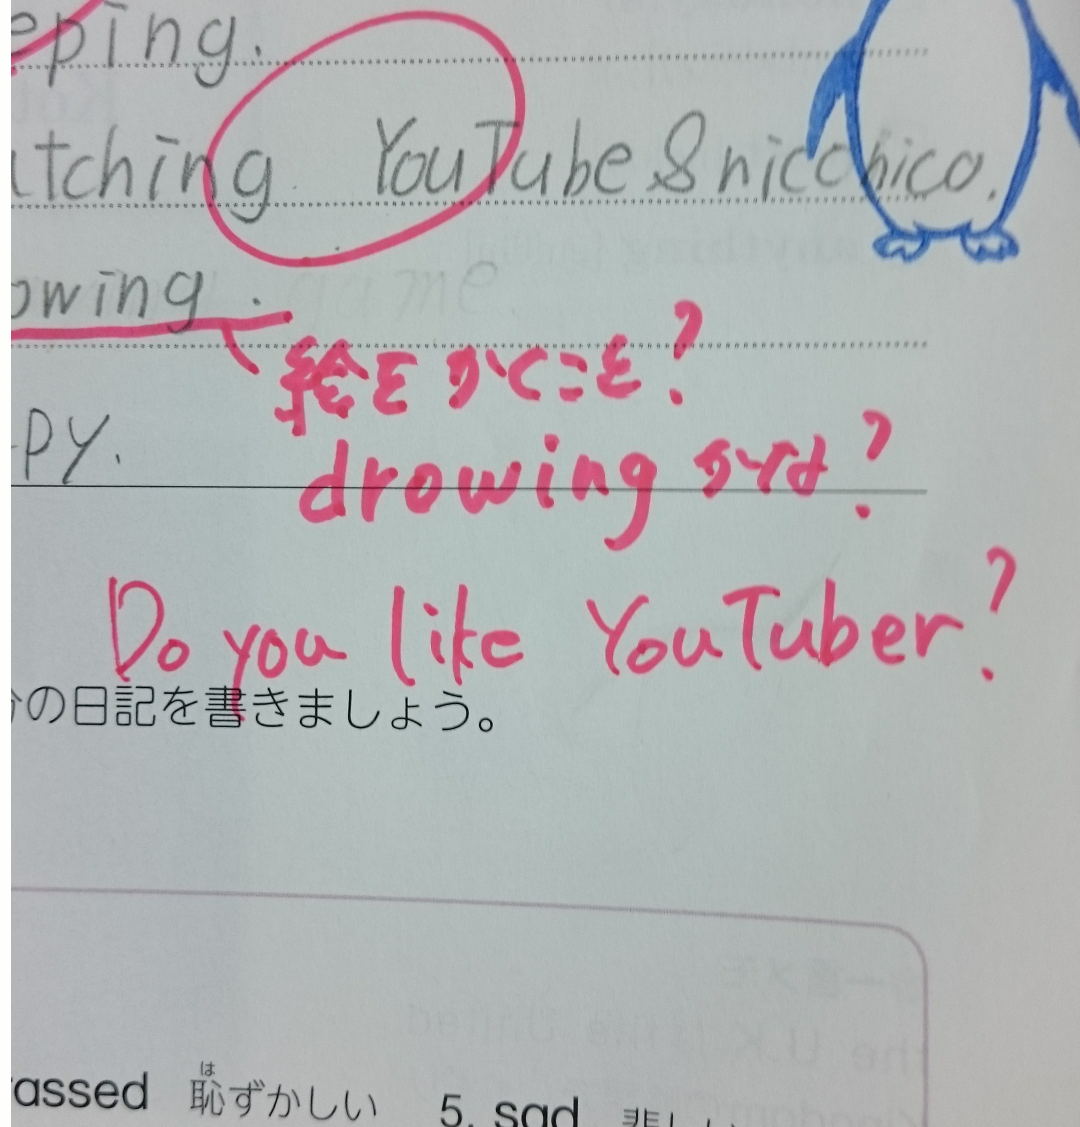 eping.
tching YouTube & nicchico.
owing.
絵をかくこと?
drowing かな?
py.
Do you like YouTuber?
の日記を書きましょう。
は
assed 恥ずかしい 5. sad 悲しい